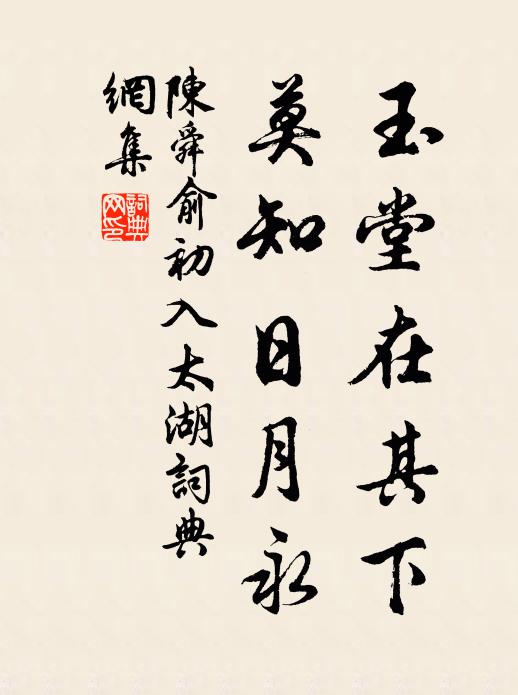 玉堂在其下
莫知日月永
陳舜俞初入太湖詞典
網集
詞典
网印